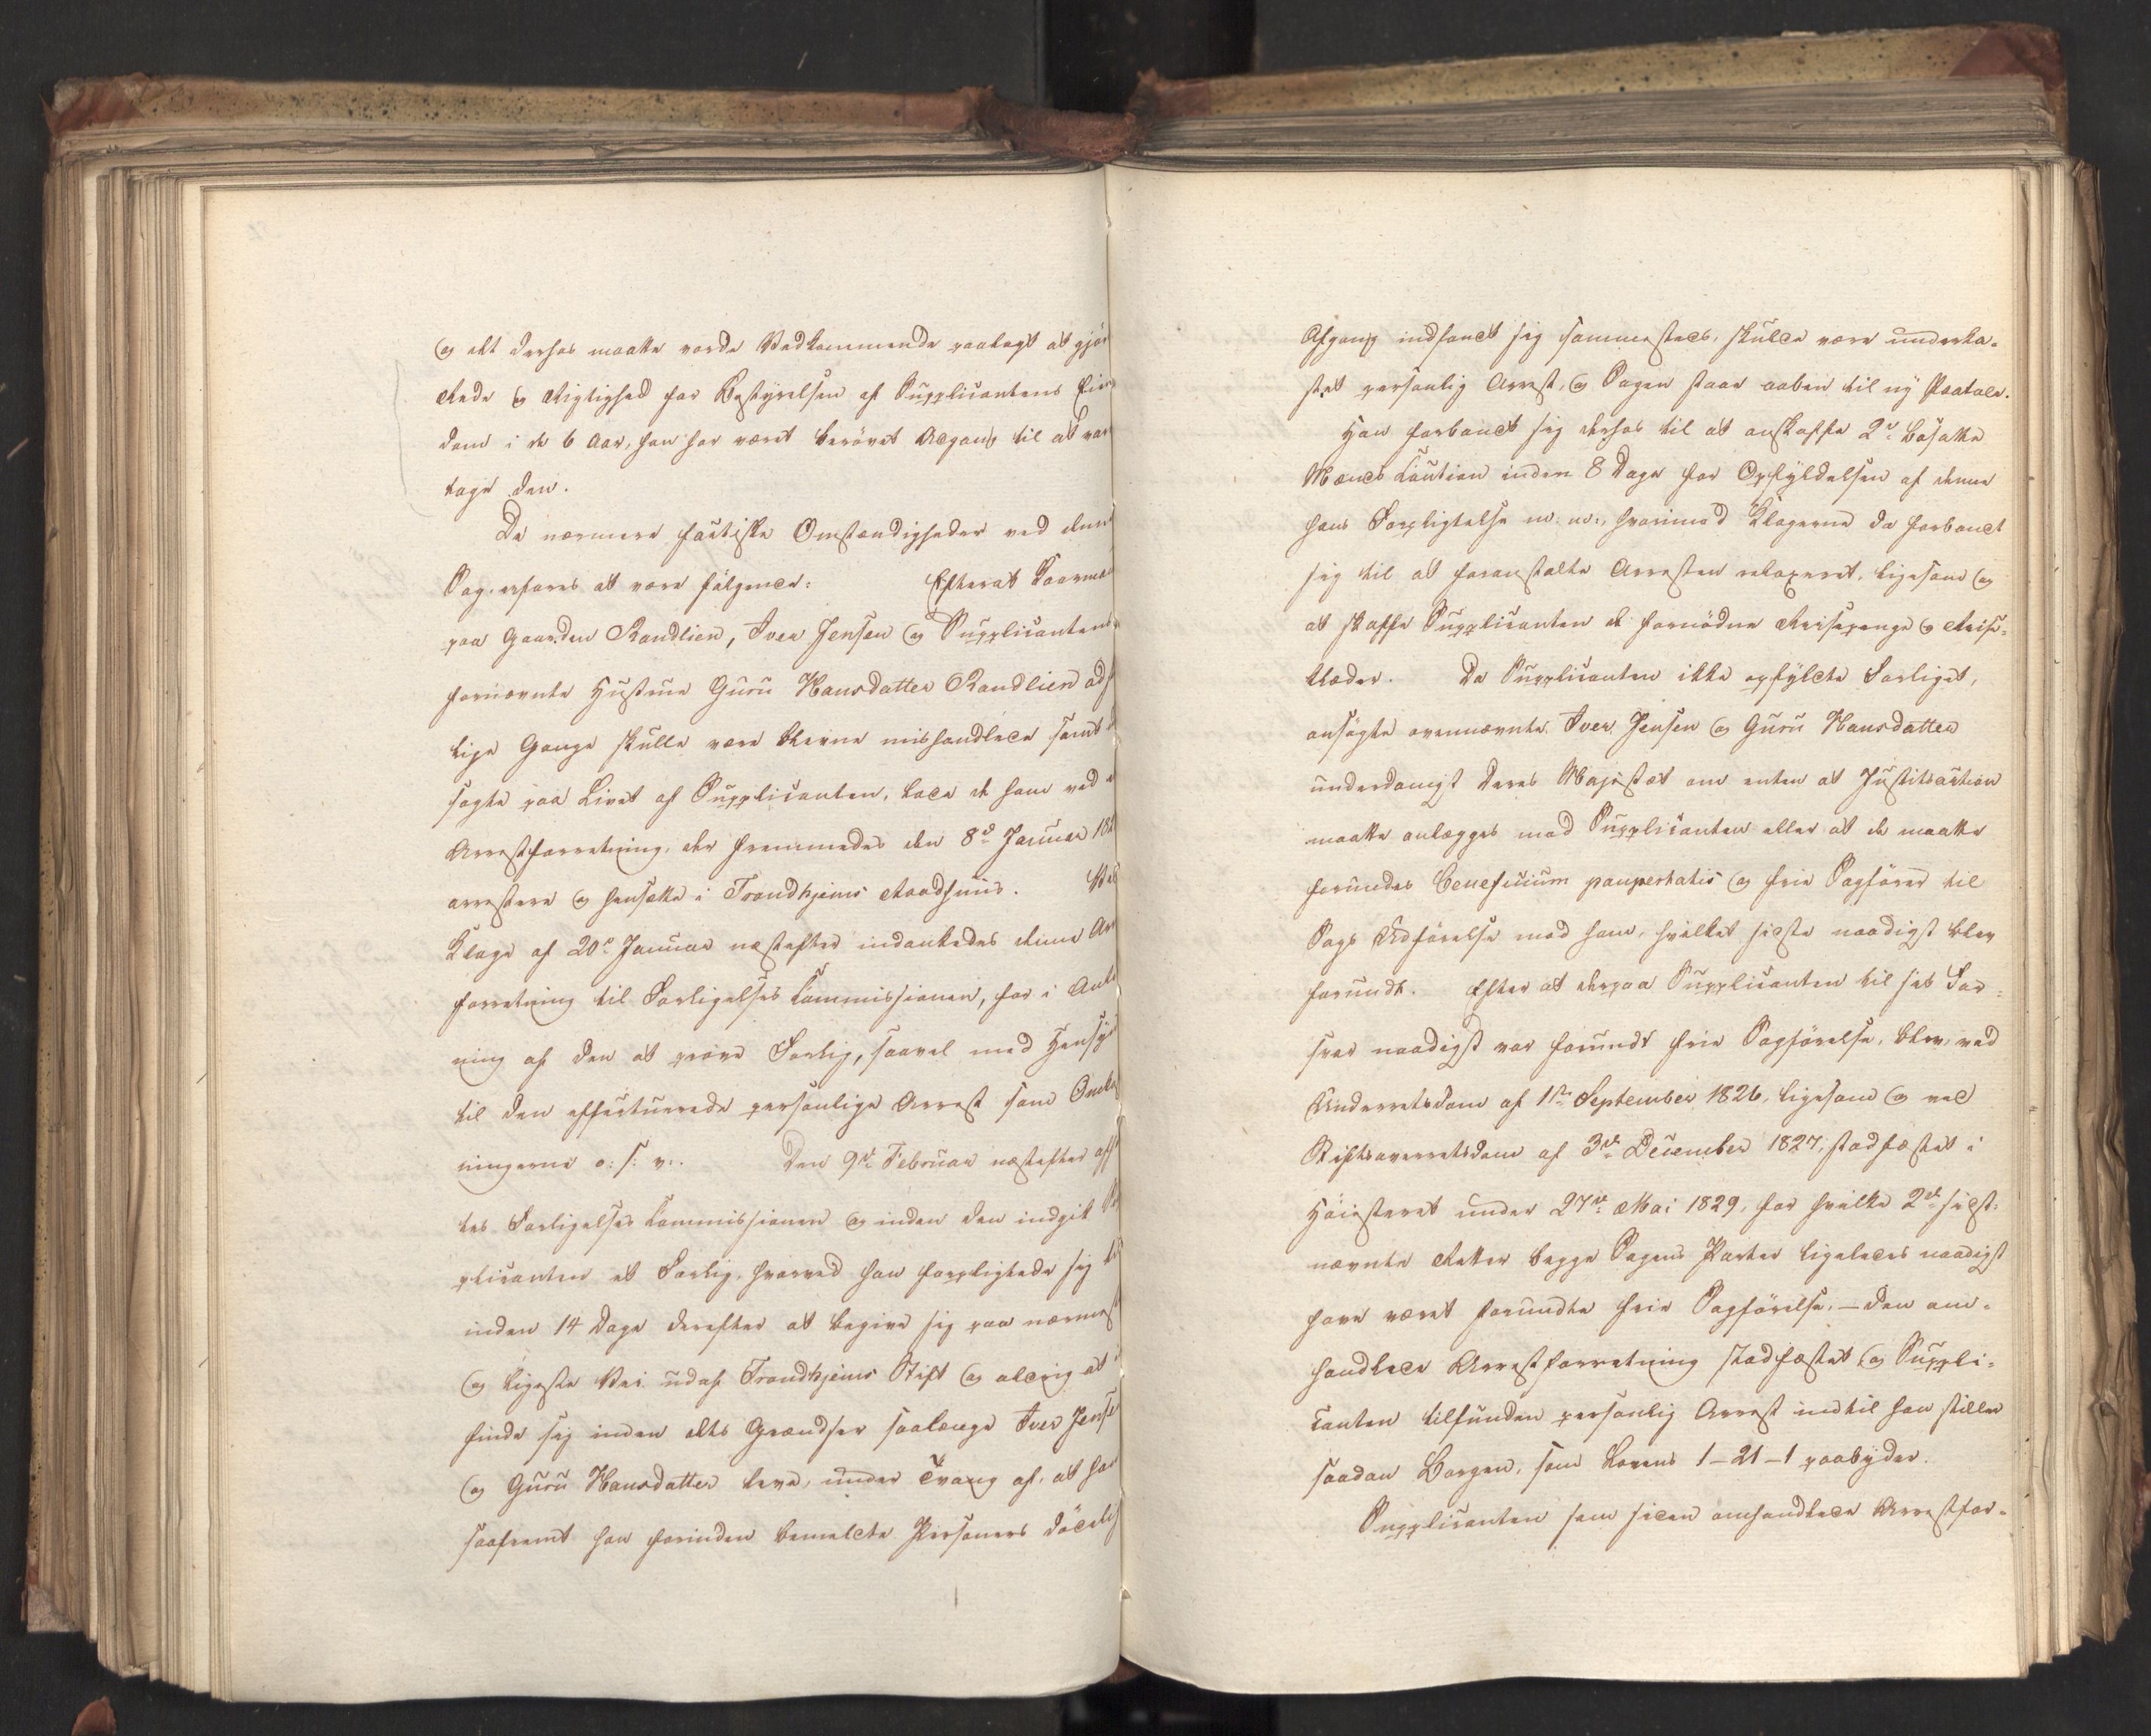 og at derhos maatte vorde Vedkommende paalagt at gjør
Rede og Rigtighed for Bestyrelsen af Supplicantens Eien
dom i de 6 Aar, han har været berövet Adgang til at vare
tage den.
De nærmere factiske Omstændigheder ved denne
Sag, erfares at være fölgende: Efterat Kaarma
paa Gaarden Randlien, Iver Jensen og Supplicantens
fornævnte Hustrue Guru Hansdatter Randlien ads
lige Gange skulle være blevne mishandlede samt
sögte paa Livet af Supplicanten, lode de ham ved
Arrestforretning, der fremmedes den 8de Januar 182
arrestere og hensætte i Trondhjems Raadhuus. Ved
Klage af 20de Januar næstefter indankedes denne Arr
forretning til Forligelses Commissionen, for i Anled
ning af den at pröve Forlig, saavel med Hensyn
til den effectuerede personlige Arrest som Omkost
ningerne o: s: v:. Den 9de Februar næstefter afh
tes Forligelses Commissionen og inden den indgik Sup
plicanten et Forlig, hvorved han forpligtede sig til
inden 14 Dage derefter at begive sig paa nærmest
og ligeste Vei udaf Trondhjems Stift og aldrig at
finde sig inden dets Grændser saalænge Iver Jense
og Guru Hansdatter leve, under Tvang af, at han
saafremt han forinden bemeldte Personers dödelig
Afgang indfandt sig sammesteds, skulde være underka-
stet personlig Arrest, og Sagen staae aaben til ny Paatale.
Han forbandt sig derhos til at anskaffe 2de bosatte
Mænds Caution inden 8 Dage for Opfyldelsen af denne
hans Forpligtelse m: m:, hvorimod Klagerne da forbandt
sig til at foranstalte Arresten relaxeret, ligesom og
at skaffe Supplicanten de fornödne Reisepenge og Reise-
klæder. Da Supplicanten ikke opfyldte Forliget,
ansögte ovennævnte Iver Jensen og Guru Hansdatter
underdanigst Deres Majestæt om enten at Justitsaction
maatte anlægges mod Supplicanten eller at de maatte
forundes beneficium paupertatis og frie Sagförer til
Sags Udförelse mod ham, hvilket sidste naadigst blev
forundt. Efter at derpaa Supplicanten til sit For-
svar naadigst var forundt frie Sagförelse, blev, ved
Underretsdom af 1ste September 1826, ligesom og ved
Stiftsoverretsdom af 3de December 1827, stadfæstet i
Höiesteret under 27de Mai 1829, for hvilke 2de sidst-
nævnte Retter begge Sagens Parter ligeledes naadigst
have været forundte frie Sagförelse, – den om-
handlede Arrestforretning stadfæstet og Suppli-
canten tilfunden personlig Arrest indtil han stiller
saadan Borgen, som Lovens 1–21–1 paabyder.
Supplicanten som siden omhandlede Arrestfor-